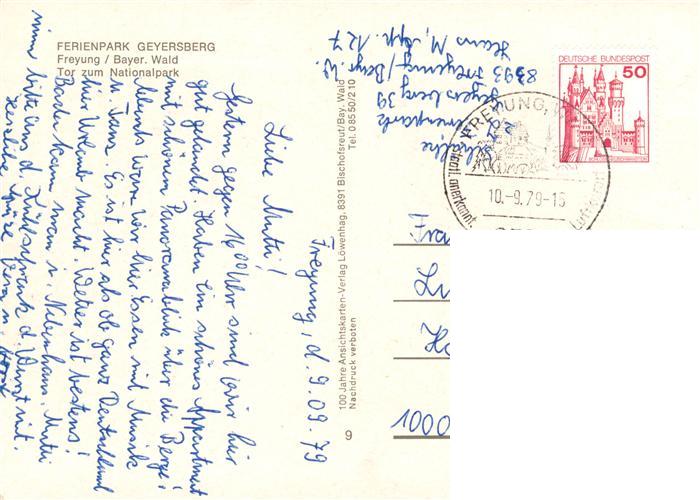 FERIENPARK GEYERSBERG
Freyung / Bayer. Wald
Tor zum Nationalpark
Freyung, d. 9.09.79
Liebe Mutti!
Gestern gegen 16 00 Uhr sind wir hier
gut gelandet. Haben ein schönes Appartment
mit schönem Panoramablick über die Berge!
Abends waren wir hier Essen mit Musik
u. Tanz. Es ist hier als ob ganz Deutschland
hier Urlaub macht. Wetter ist bestens!
Baden kann man i. Nebenhaus. Mutti
nimm bitte aus d. Kühlschrank d. Wurst mit.
Herzliche Grüße
100 Jahre Ansichtskarten-Verlag Löwenhag, 8391 Bischofsreut/Bay. Wald
Nachdruck verboten
Tel. 0 85 50/2 10
9
Geyersberg 39
8393 Freyung/Bayr. W.
Haus M, App. 127
DEUTSCHE BUNDESPOST
50
FREYUNG,
10.-9.79-16
staatl. anerkannt.
Luftkurort
1000